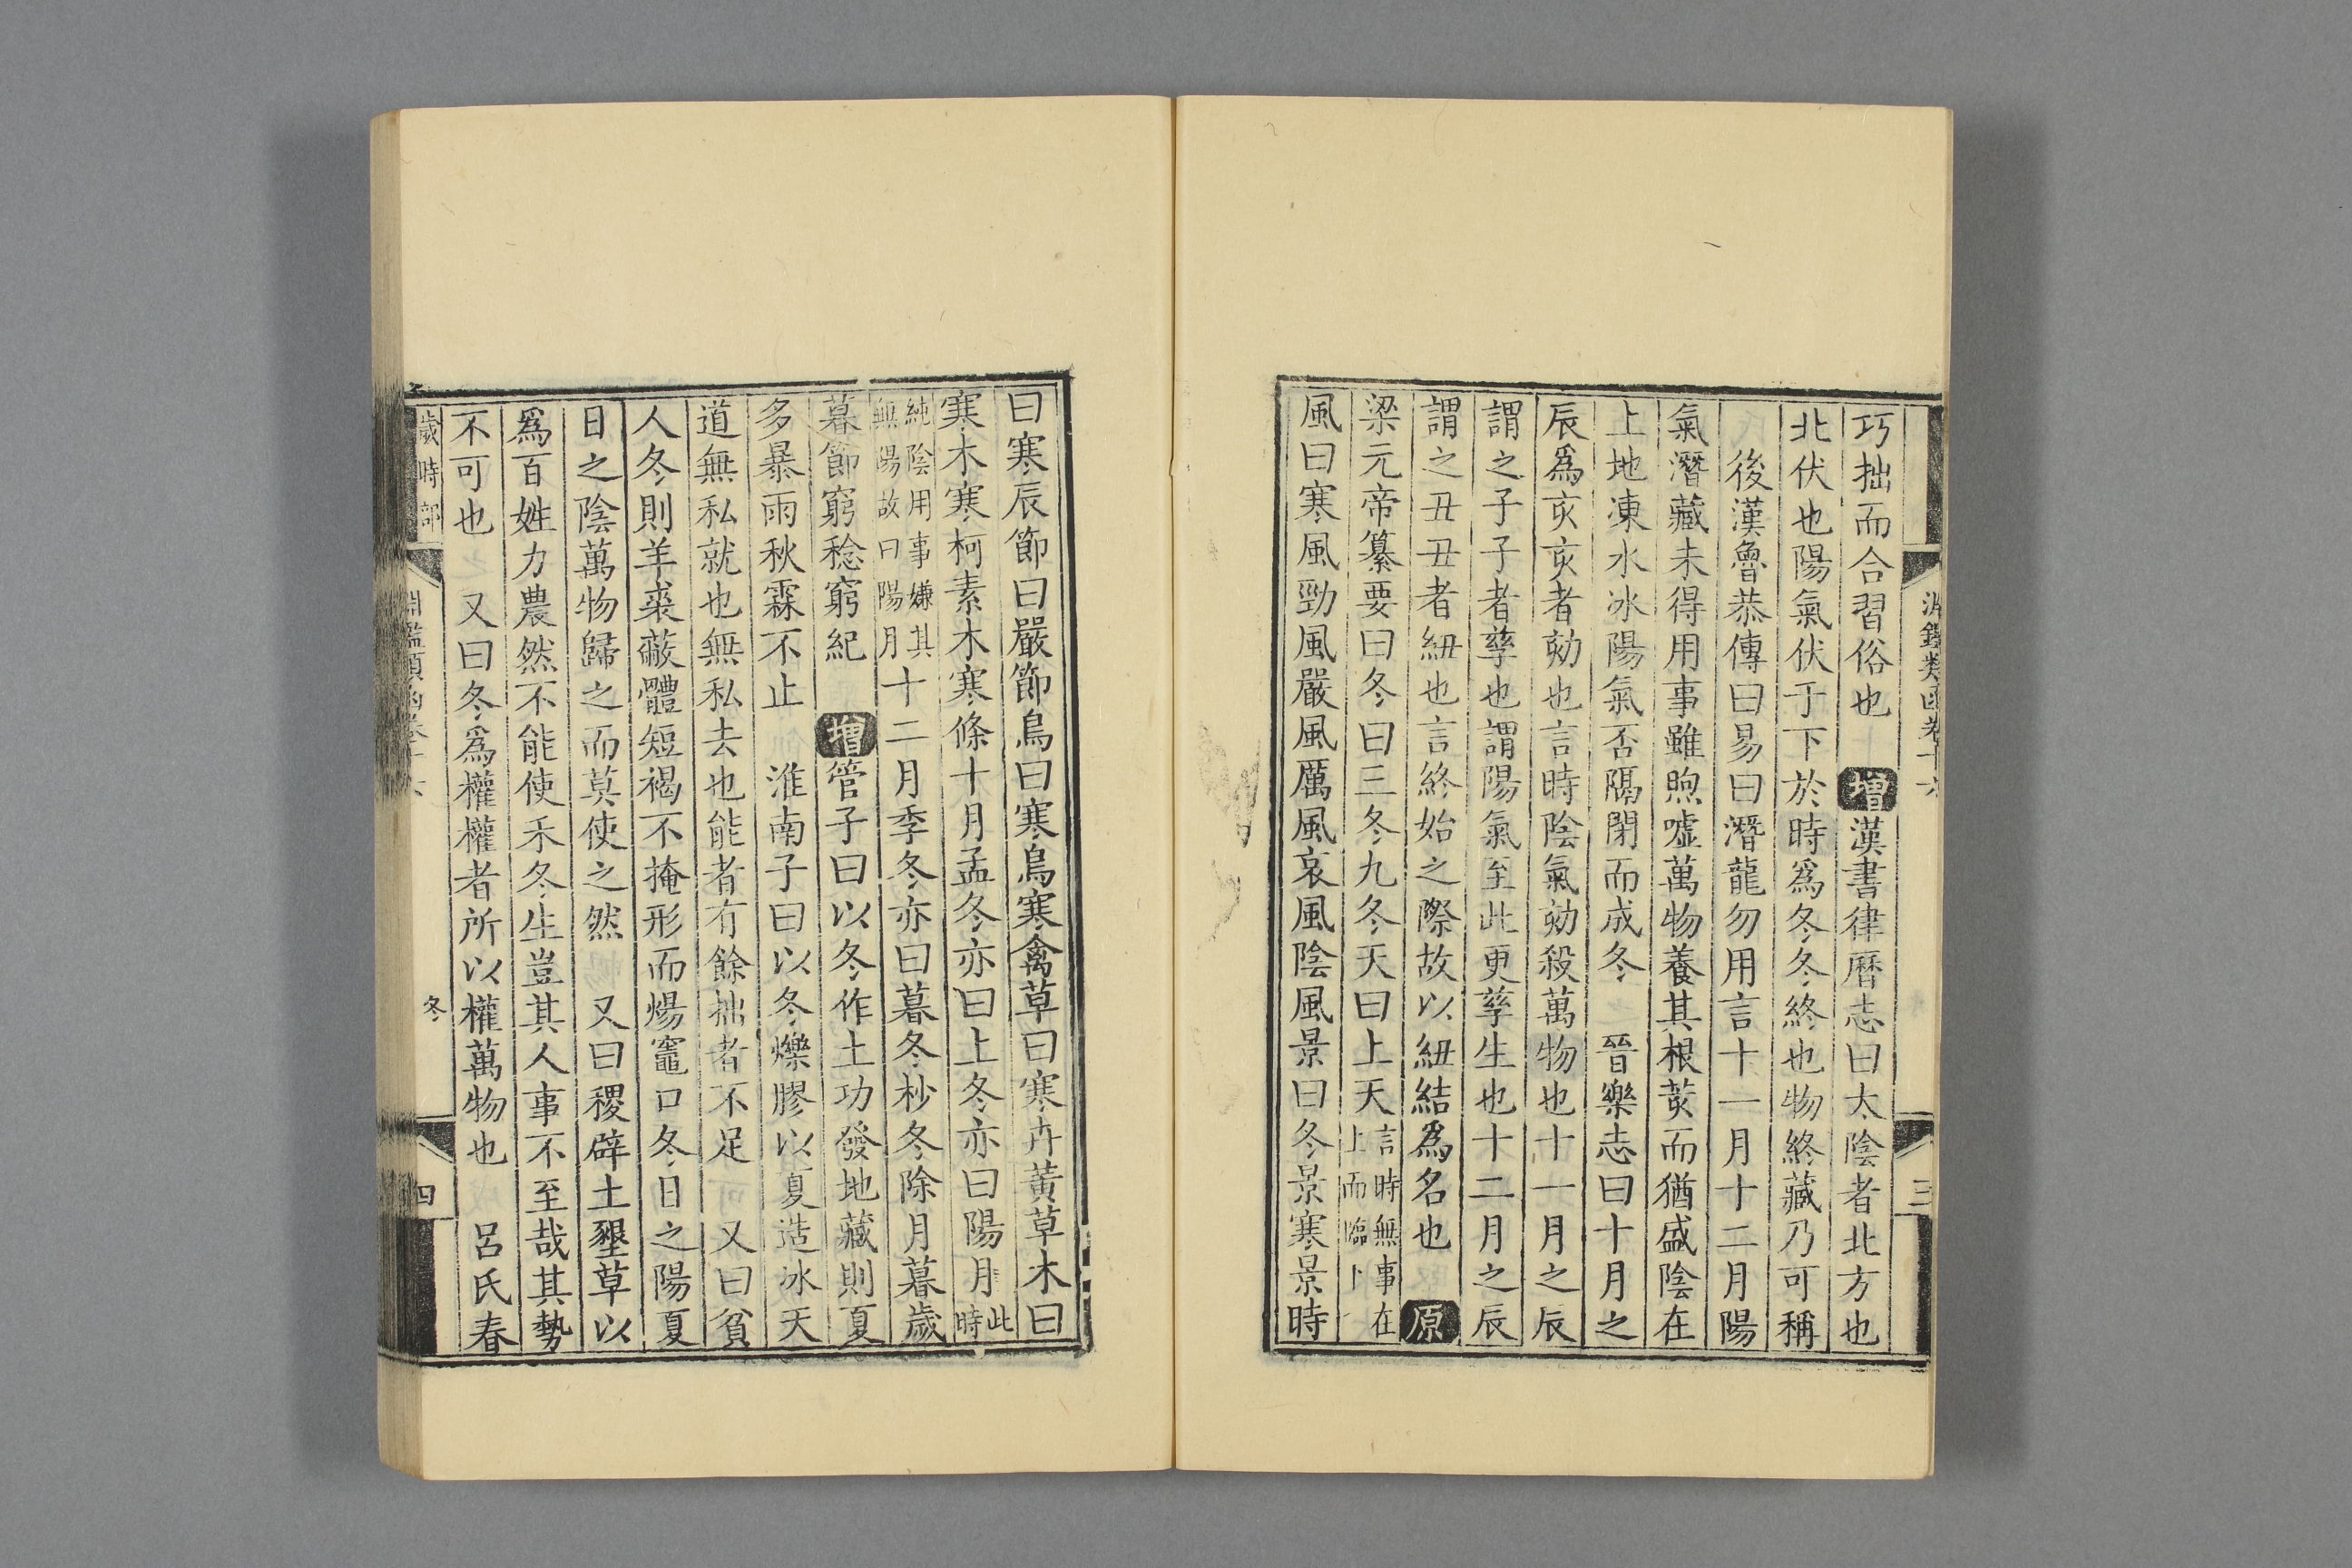 淵鑑類函卷十六
三
巧拙而合習俗也 增漢書律曆志曰太陰者北方也
北伏也陽氣伏于下於時爲冬冬終也物終藏乃可稱
後漢魯恭傳曰易曰潛龍勿用言十一月十二月陽
氣潛藏未得用事雖煦噓萬物養其根荄而猶盛陰在
上地凍水冰陽氣否隔閉而成冬 晉樂志曰十月之
辰爲亥亥者劾也言時陰氣劾殺萬物也十一月之辰
謂之子子者孳也謂陽氣至此更孳生也十二月之辰
謂之丑丑者紐也言終始之際故以紐結爲名也 原
梁元帝纂要曰冬曰三冬九冬天曰上天言時無事在上而臨下
風曰寒風勁風嚴風厲風哀風陰風景曰冬景寒景時
曰寒辰節曰嚴節鳥曰寒鳥寒禽草曰寒卉黃草木曰
寒木寒柯素木寒條十月孟冬亦曰上冬亦曰陽月此時
純陰用事嫌其無陽故曰陽月十二月季冬亦曰暮冬杪冬除月暮歲
暮節窮稔窮紀 增管子曰以冬作土功發地藏則夏
多暴雨秋霖不止 淮南子曰以冬爍膠以夏造冰天
道無私就也無私去也能者有餘拙者不足 又曰貧
人冬則羊裘蔽體短褐不掩形而煬竈口冬日之陽夏
日之陰萬物歸之而莫使之然 又曰稷辟土墾草以
爲百姓力農然不能使禾冬生豈其人事不至哉其勢
不可也 又曰冬爲權權者所以權萬物也 呂氏春
歲時部
淵鑑類函卷十六
冬
四